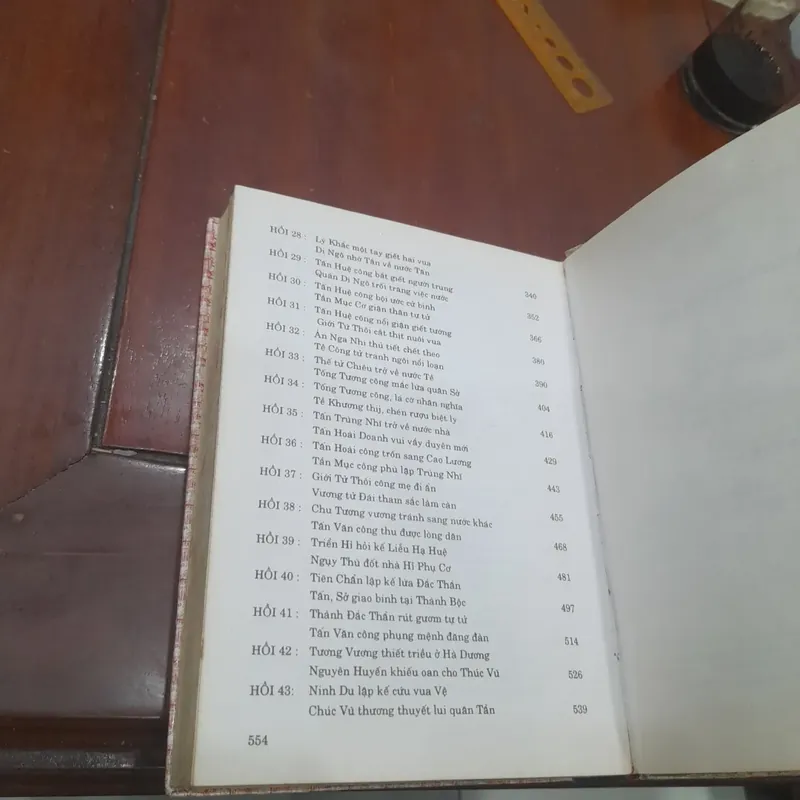 HỒI 28 : Lý Khắc một tay giết hai vua
Di Ngô nhờ Tần về nước Tấn 340
HỒI 29 : Tấn Huệ công bắt giết người trung
Quản Di Ngô trối trăng việc nước 352
HỒI 30 : Tấn Huệ công bội ước cử binh
Tần Mục Cơ giận thân tự tử 366
HỒI 31 : Tấn Huệ công nổi giận giết tướng
Giới Tử Thôi cắt thịt nuôi vua 380
HỒI 32 : Án Nga Nhi thủ tiết chết theo
Tề Công tử tranh ngôi nổi loạn 390
HỒI 33 : Thế tử Chiêu trở về nước Tề
Tống Tương công mắc lừa quân Sở 404
HỒI 34 : Tống Tương công, lá cờ nhân nghĩa
Tề Khương thị, chén rượu biệt ly 416
HỒI 35 : Tấn Trùng Nhĩ trở về nước nhà
Tần Hoài Doanh vui vầy duyên mới 429
HỒI 36 : Tấn Hoài công trốn sang Cao Lương
Tần Mục công phù lập Trùng Nhĩ 443
HỒI 37 : Giới Tử Thôi cõng mẹ đi ẩn
Vương tử Đái tham sắc làm càn 455
HỒI 38 : Chu Tương vương tránh sang nước khác
Tấn Văn công thu được lòng dân 468
HỒI 39 : Triển Hỉ hỏi kế Liễu Hạ Huệ
Ngụy Thù đốt nhà Hi Phụ Cơ 481
HỒI 40 : Tiên Chẩn lập kế lừa Đắc Thần
Tấn, Sở giao binh tại Thành Bộc 497
HỒI 41 : Thành Đắc Thần rút gươm tự tử
Tấn Văn công phụng mệnh đăng đàn 514
HỒI 42 : Tương Vương thiết triều ở Hà Dương
Nguyên Huyến khiếu oan cho Thúc Vũ 526
HỒI 43: Ninh Du lập kế cứu vua Vệ
Chúc Vũ thương thuyết lui quân Tần 539
554